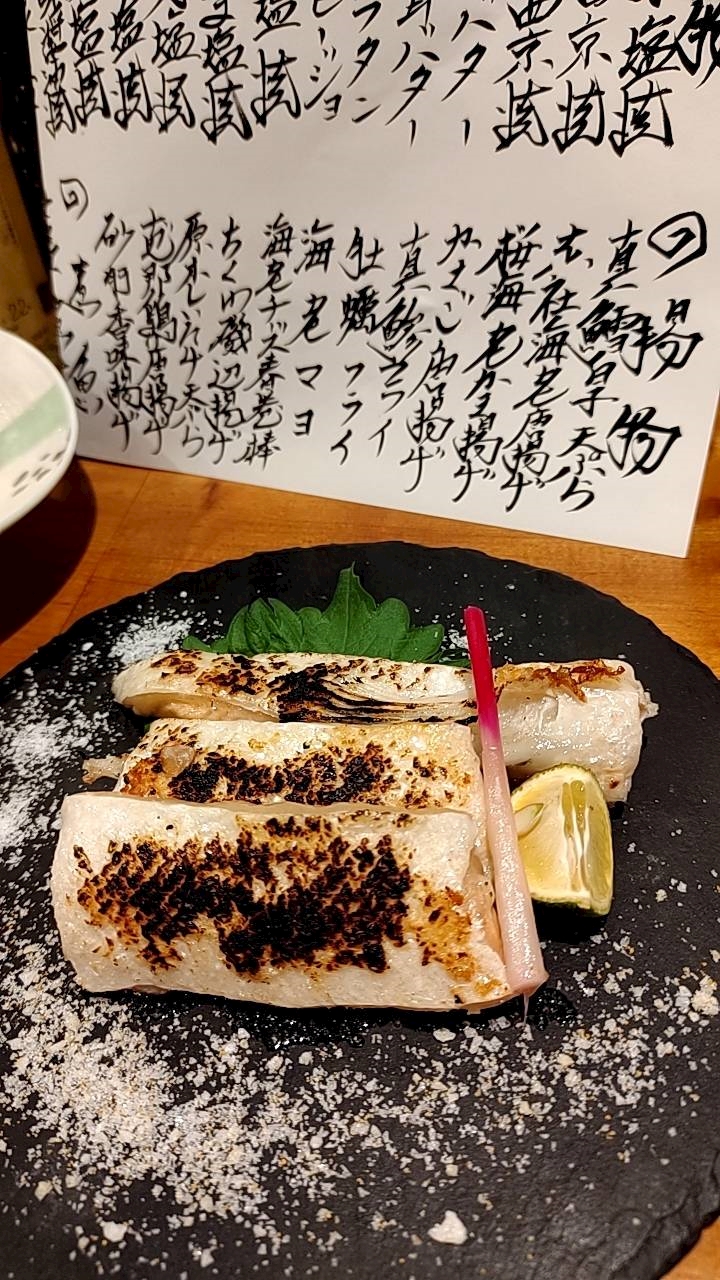 物
塩焼
京焼
西京焼
バター
バター
ラタン
ージョ
塩焼
塩焼
塩焼
塩焼
塩焼
揚物
真鱈白子天ぷら
海老唐揚げ
桜海老かき揚げ
かさご唐揚げ
真鯵フライ
牡蠣フライ
海老マヨ
海老チーズ春巻棒
ちくわ磯辺揚げ
原木しいたけ天ぷら
恵那鶏唐揚げ
砂肝香味揚げ